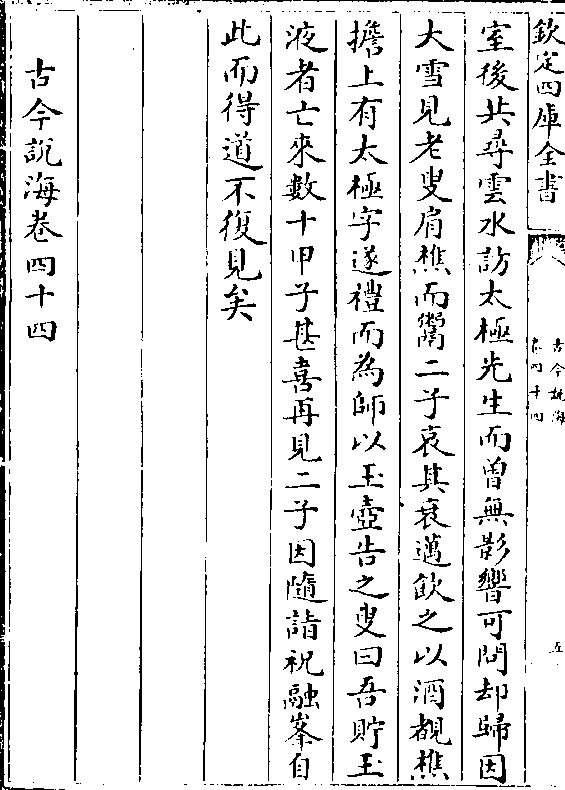 欽定四庫全書
古今說海
卷四十四
五
室後共尋雲水訪太極先生而曽無影響可問却歸因
大雪見老叟肩樵而鬻二子哀其衰邁飲之以酒覩樵
擔上有太極字遂禮而為師以玉壺告之叟曰吾貯玉
液者亡來數十甲子甚喜再見二子因隨詣祝融峯自
此而得道不復見矣
古今說海卷四十四